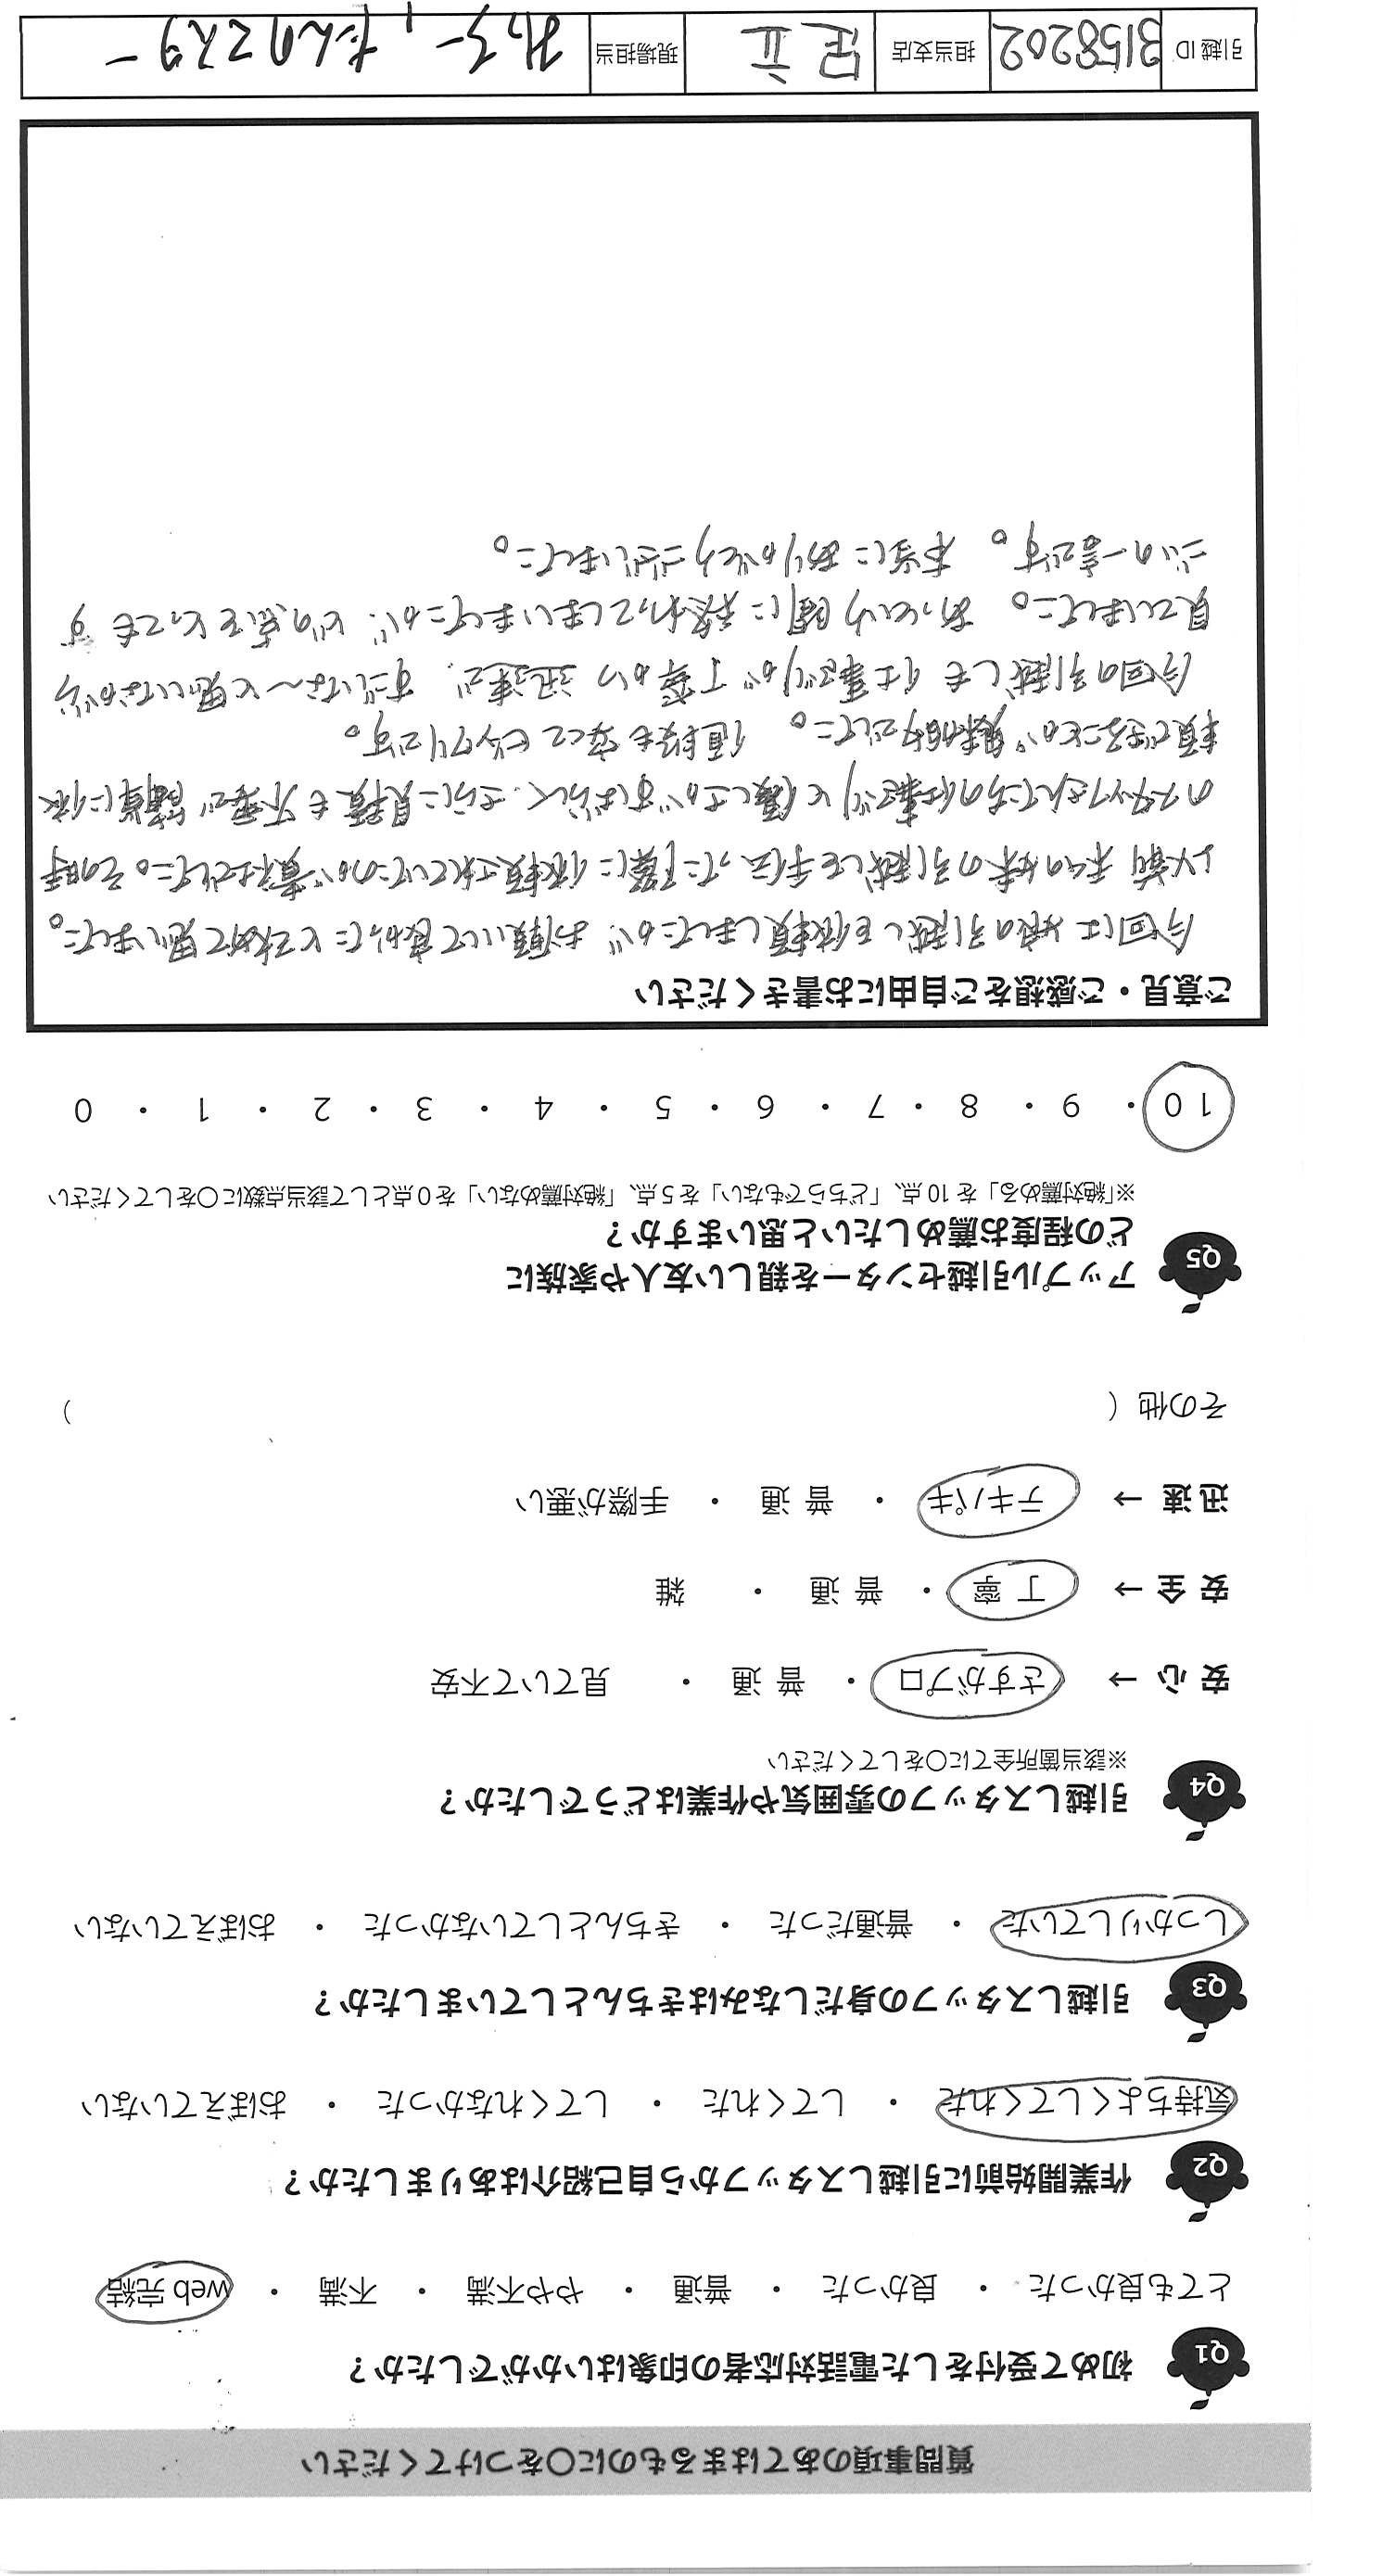 質問事項のあてはまるものに〇をつけてください
Q1 初めて受付をした電話対応者の印象はいかがでしたか？
とても良かった ・ 良かった ・ 普通 ・ やや不満 ・ 不満 ・ web 完結
Q2 作業開始前に引越しスタッフから自己紹介はありましたか？
気持ちよくしてくれた ・ してくれた ・ してくれなかった ・ おぼえていない
Q3 引越しスタッフの身だしなみはきちんとしていましたか？
しっかりしていた ・ 普通だった ・ きちんとしていなかった ・ おぼえていない
Q4 引越しスタッフの雰囲気や作業はどうでしたか？
※該当箇所全てに〇をしてください
安心 → さすがプロ ・ 普通 ・ 見ていて不安
安全 → 丁寧 ・ 普通 ・ 雑
迅速 → テキパキ ・ 普通 ・ 手際が悪い
その他（ ）
Q5 アップル引越センターを親しい友人や家族に
どの程度お薦めしたいと思いますか？
※「絶対薦める」を 10 点、「どちらでもない」を 5 点、「絶対薦めない」を 0 点として該当点数に〇をしてください
10 ・ 9 ・ 8 ・ 7 ・ 6 ・ 5 ・ 4 ・ 3 ・ 2 ・ 1 ・ 0
ご意見・ご感想をご自由にお書きください
今回は娘の引越しを依頼しましたが、お願いして良かったと改めて思いました。
以前 私の妹の引越しを手伝った際に依頼されていたのが貴社でした。その時
のスタッフさんたちの仕事ぶりと優しさがすばらしく、さらに見積も不要で簡単に依
頼できることが魅力的でした。 値段も安くてビックリです。
今回の引越しも仕事ぶりが丁寧かつ迅速で、すごいな〜と思いながら
見ていました。 あっという間に終わってしまいましたが、どの点をとっても す
ごいの一言です。 本当にありがとうございました。
引越 ID 3158202 担当支店 足立 現場担当